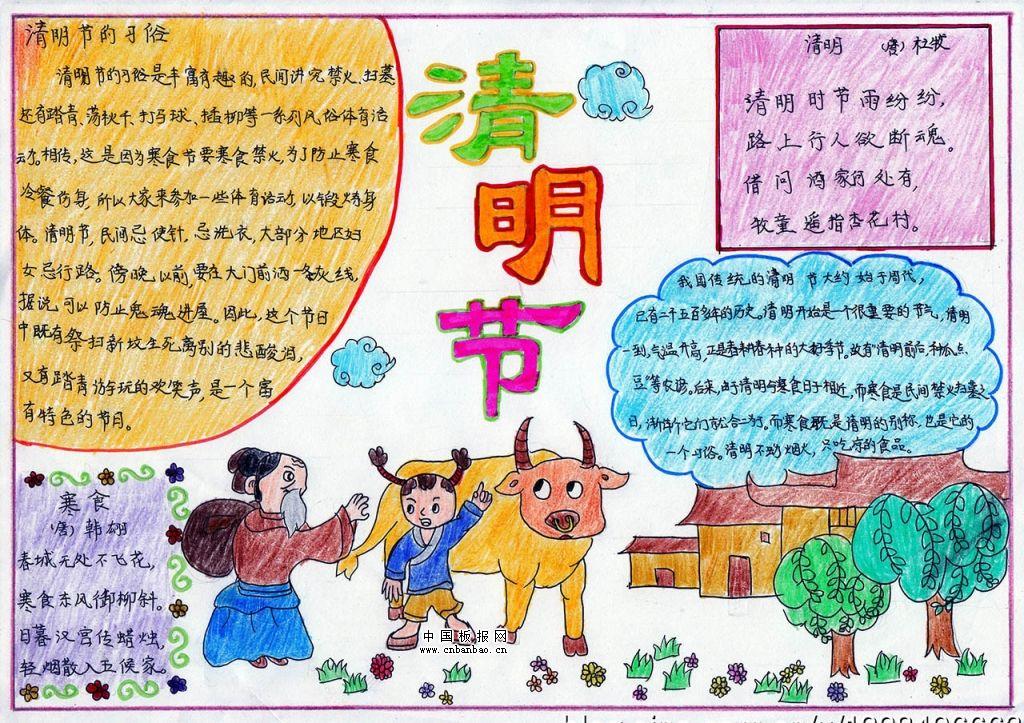 清明节的习俗
清明节的习俗是丰富有趣的,民间讲究禁火、扫墓
还有踏青、荡秋千、打马球、插柳等一系列风俗体育活
动。相传,这是因为寒食节要寒食禁火,为了防止寒食
冷餐伤身,所以大家来参加一些体育活动,以锻炼身
体。清明节,民间忌使针,忌洗衣,大部分地区妇
女忌行路。傍晚以前,要在大门前洒一条灰线,
据说可以防止鬼魂进屋。因此,这个节日
中既有祭扫新坟生死离别的悲酸泪,
又有踏青游玩的欢笑声,是一个富
有特色的节日。
清
明
节
清明 (唐)杜牧
清明时节雨纷纷,
路上行人欲断魂。
借问酒家何处有,
牧童遥指杏花村。
我国传统的清明节大约始于周代,
已有二千五百多年的历史。清明开始是一个很重要的节气,清明
一到,气温升高,正是春耕春种的大好季节。故有"清明前后,种瓜点
豆"等农谚。后来,由于清明与寒食日子相近,而寒食是民间禁火扫墓之
日,渐渐
而寒食既是清明的别称,也是它的
一个习俗。清明不动烟火,只吃凉的食品。
寒食
(唐)韩翃
春城无处不飞花,
寒食东风御柳斜。
日暮汉宫传蜡烛,
轻烟散入五侯家。
中国板报网
www.cnbanbao.cn